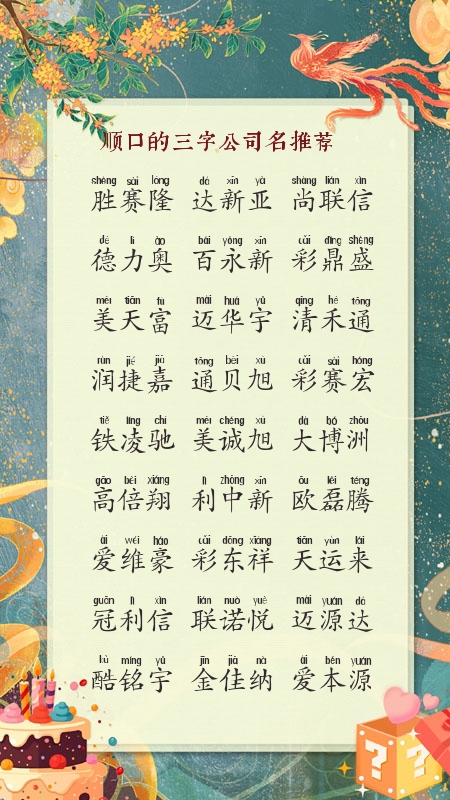 顺口的三字公司名推荐
shèng sài lóng dá xīn yà shàng lián xìn
胜赛隆 达新亚 尚联信
dé lì ào bǎi yǒng xīn cǎi dǐng shèng
德力奥 百永新 彩鼎盛
měi tiān fù mài huá yǔ qīng hé tōng
美天富 迈华宇 清禾通
rùn jié jiā tōng bèi xù cǎi sài hóng
润捷嘉 通贝旭 彩赛宏
tiě líng chí měi chéng xù dà bó zhōu
铁凌驰 美诚旭 大博洲
gāo bèi xiáng lì zhōng xīn ōu lěi téng
高倍翔 利中新 欧磊腾
ài wéi háo cǎi dōng xiáng tiān yùn lái
爱维豪 彩东祥 天运来
guān lì xìn lián nuò yuè mài yuán dá
冠利信 联诺悦 迈源达
kù míng yǔ jīn jiā nà ài běn yuán
酷铭宇 金佳纳 爱本源
? ?